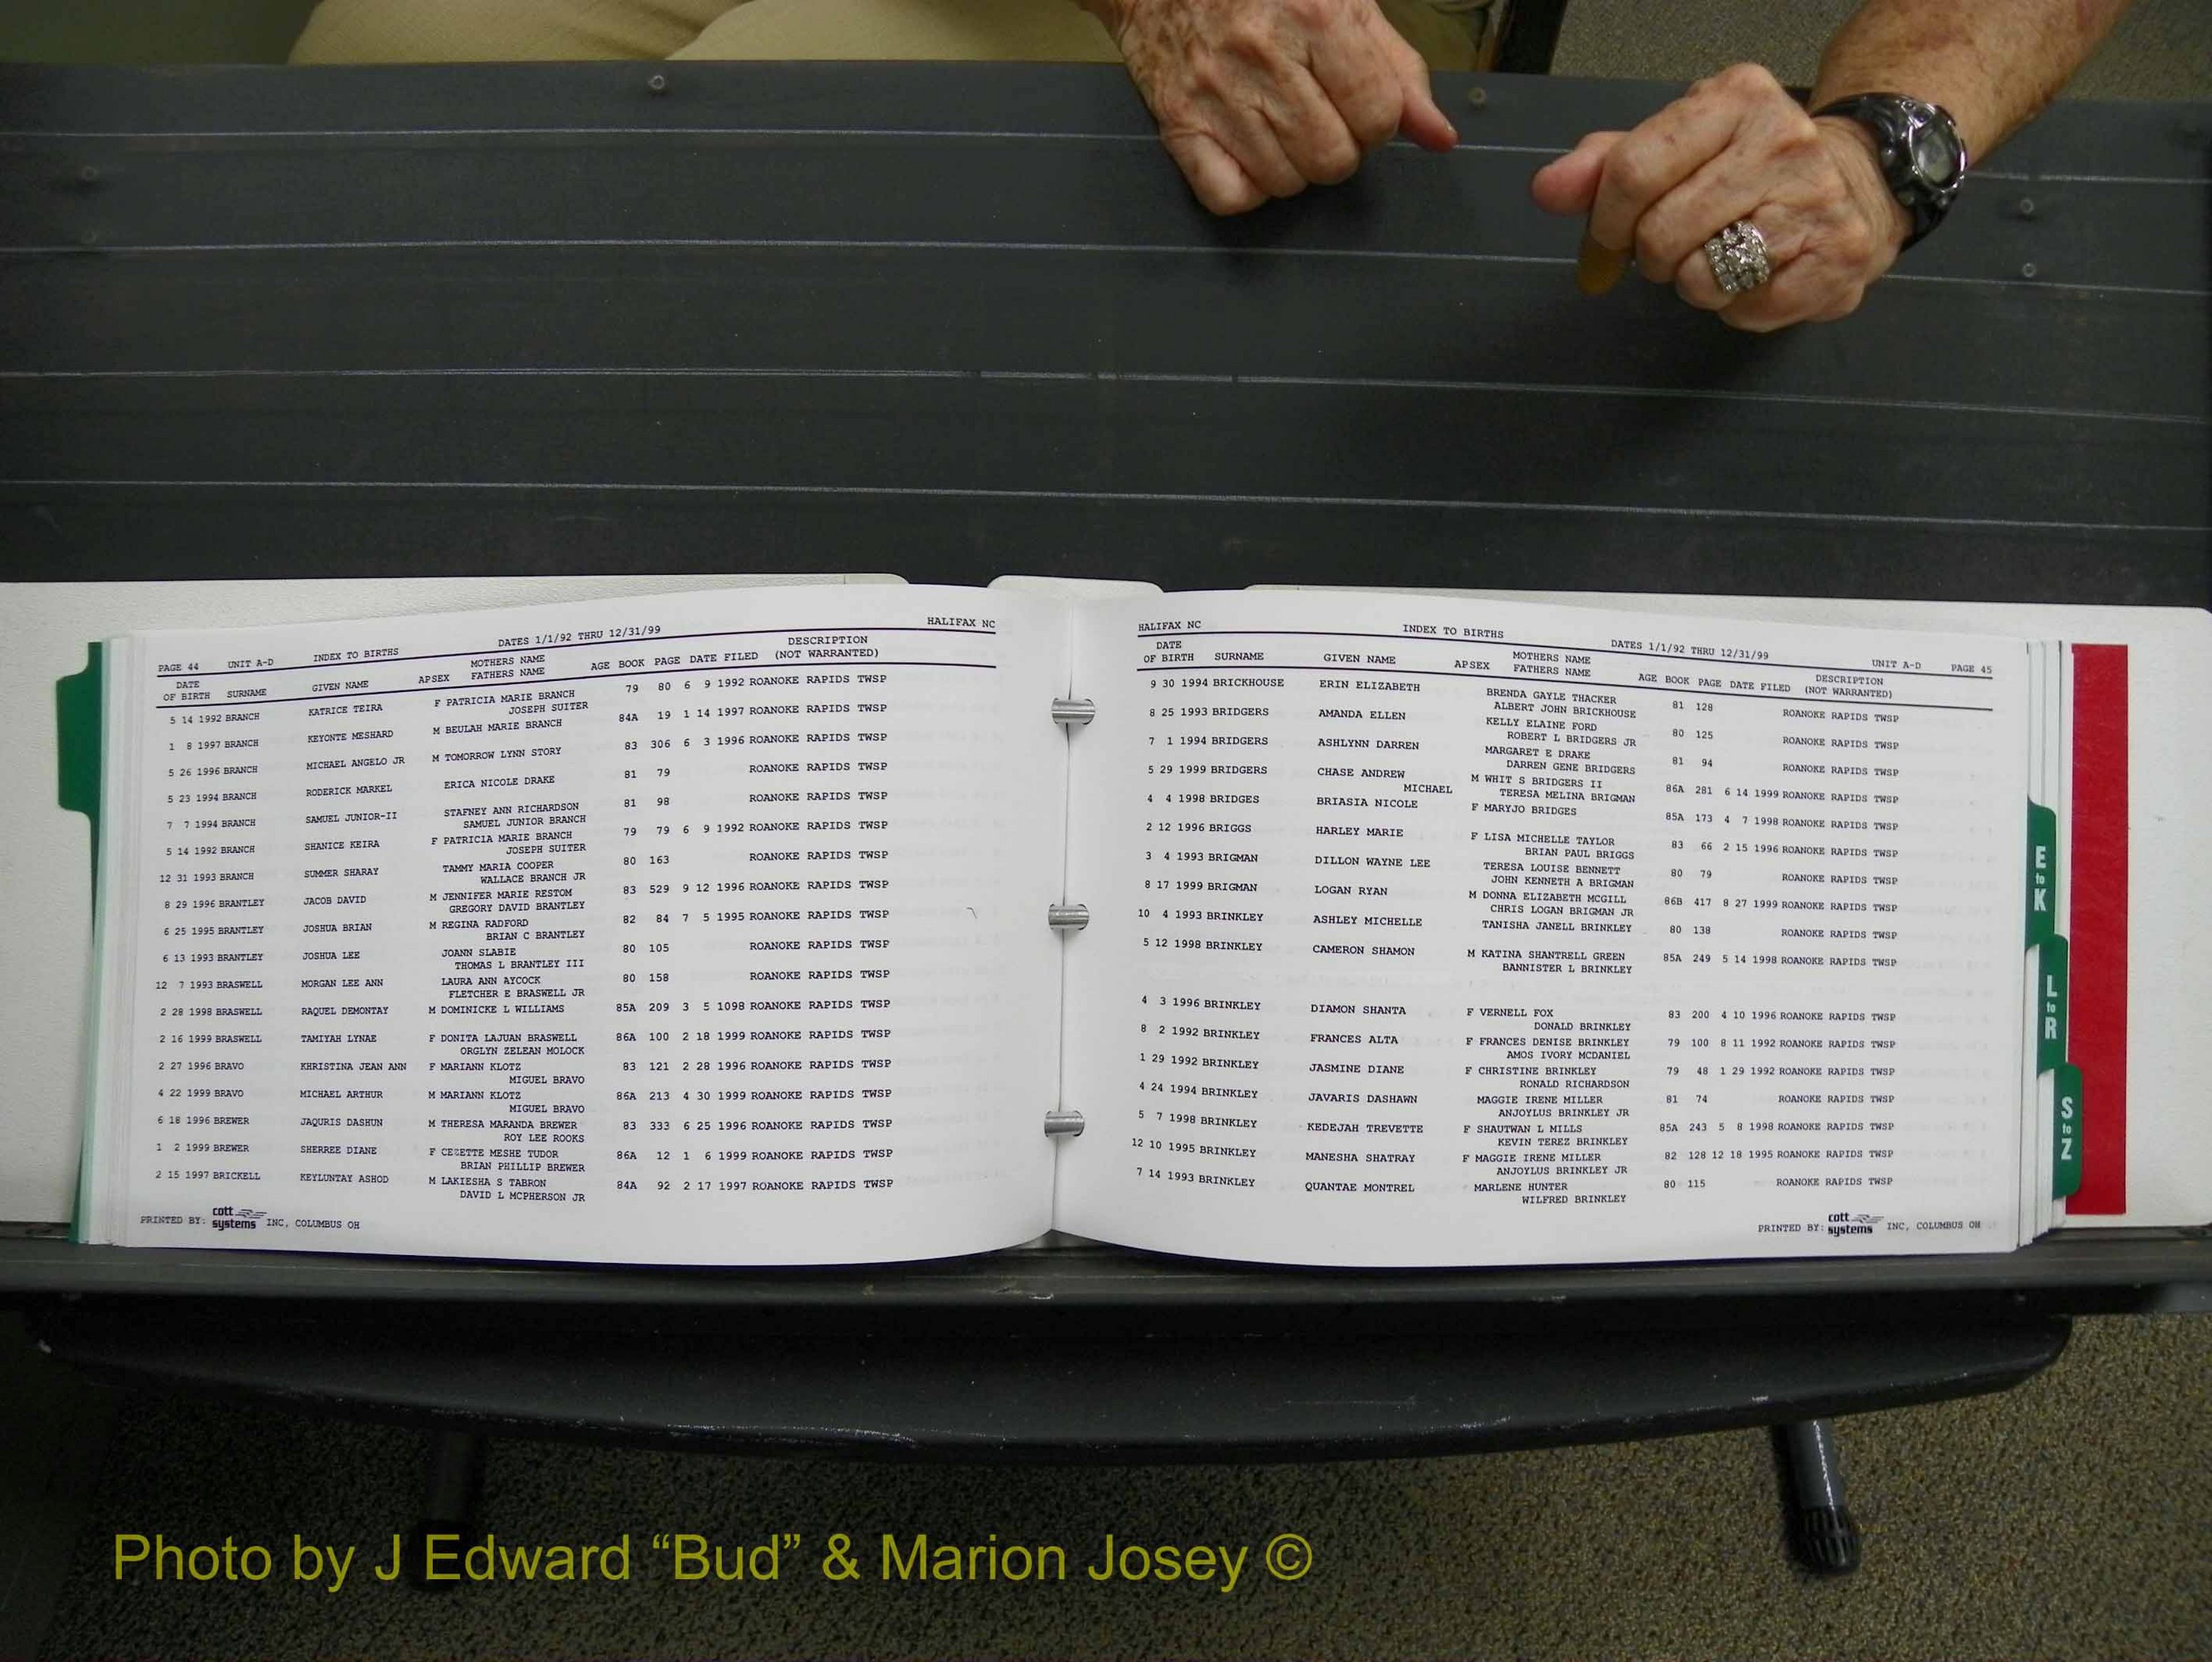 PAGE 44 UNIT A-D INDEX TO BIRTHS DATES 1/1/92 THRU 12/31/99 HALIFAX NC
DATE MOTHERS NAME DESCRIPTION
OF BIRTH SURNAME GIVEN NAME APSEX FATHERS NAME AGE BOOK PAGE DATE FILED (NOT WARRANTED)
5 14 1992 BRANCH KATRICE TEIRA F PATRICIA MARIE BRANCH 79 80 6 9 1992 ROANOKE RAPIDS TWSP
JOSEPH SUITER
1 8 1997 BRANCH KEYONTE MESHARD M BEULAH MARIE BRANCH 84A 19 1 14 1997 ROANOKE RAPIDS TWSP
5 26 1996 BRANCH MICHAEL ANGELO JR M TOMORROW LYNN STORY 83 306 6 3 1996 ROANOKE RAPIDS TWSP
5 23 1994 BRANCH RODERICK MARKEL ERICA NICOLE DRAKE 81 79 ROANOKE RAPIDS TWSP
7 7 1994 BRANCH SAMUEL JUNIOR-II STAFNEY ANN RICHARDSON 81 98 ROANOKE RAPIDS TWSP
SAMUEL JUNIOR BRANCH
5 14 1992 BRANCH SHANICE KEIRA F PATRICIA MARIE BRANCH 79 79 6 9 1992 ROANOKE RAPIDS TWSP
JOSEPH SUITER
12 31 1993 BRANCH SUMMER SHARAY TAMMY MARIA COOPER 80 163 ROANOKE RAPIDS TWSP
WALLACE BRANCH JR
8 29 1996 BRANTLEY JACOB DAVID M JENNIFER MARIE RESTOM 83 529 9 12 1996 ROANOKE RAPIDS TWSP
GREGORY DAVID BRANTLEY
6 25 1995 BRANTLEY JOSHUA BRIAN M REGINA RADFORD 82 84 7 5 1995 ROANOKE RAPIDS TWSP
BRIAN C BRANTLEY
6 13 1993 BRANTLEY JOSHUA LEE JOANN SLABIE 80 105 ROANOKE RAPIDS TWSP
THOMAS L BRANTLEY III
12 7 1993 BRASWELL MORGAN LEE ANN LAURA ANN AYCOCK 80 158 ROANOKE RAPIDS TWSP
FLETCHER E BRASWELL JR
2 28 1998 BRASWELL RAQUEL DEMONTAY M DOMINICKE L WILLIAMS 85A 209 3 5 1098 ROANOKE RAPIDS TWSP
2 16 1999 BRASWELL TAMIYAH LYNAE F DONITA LAJUAN BRASWELL 86A 100 2 18 1999 ROANOKE RAPIDS TWSP
ORGLYN ZELEAN MOLOCK
2 27 1996 BRAVO KHRISTINA JEAN ANN F MARIANN KLOTZ 83 121 2 28 1996 ROANOKE RAPIDS TWSP
MIGUEL BRAVO
4 22 1999 BRAVO MICHAEL ARTHUR M MARIANN KLOTZ 86A 213 4 30 1999 ROANOKE RAPIDS TWSP
MIGUEL BRAVO
6 18 1996 BREWER JAQURIS DASHUN M THERESA MARANDA BREWER 83 333 6 25 1996 ROANOKE RAPIDS TWSP
ROY LEE ROOKS
1 2 1999 BREWER SHERREE DIANE F MESHE TUDOR 86A 12 1 6 1999 ROANOKE RAPIDS TWSP
BRIAN PHILLIP BREWER
2 15 1997 BRICKELL KEYLUNTAY ASHOD M LAKIESHA S TABRON 84A 92 2 17 1997 ROANOKE RAPIDS TWSP
DAVID L MCPHERSON JR
PRINTED BY: cott systems INC, COLUMBUS OH
HALIFAX NC INDEX TO BIRTHS DATES 1/1/92 THRU 12/31/99 UNIT A-D PAGE 45
DATE MOTHERS NAME DESCRIPTION
OF BIRTH SURNAME GIVEN NAME APSEX FATHERS NAME AGE BOOK PAGE DATE FILED (NOT WARRANTED)
9 30 1994 BRICKHOUSE ERIN ELIZABETH BRENDA GAYLE THACKER 81 128 ROANOKE RAPIDS TWSP
ALBERT JOHN BRICKHOUSE
8 25 1993 BRIDGERS AMANDA ELLEN KELLY ELAINE FORD 80 125 ROANOKE RAPIDS TWSP
ROBERT L BRIDGERS JR
7 1 1994 BRIDGERS ASHLYNN DARREN MARGARET E DRAKE 81 94 ROANOKE RAPIDS TWSP
DARREN GENE BRIDGERS
5 29 1999 BRIDGERS CHASE ANDREW M WHIT S BRIDGERS II 86A 281 6 14 1999 ROANOKE RAPIDS TWSP
MICHAEL TERESA MELINA BRIGMAN
4 4 1998 BRIDGES BRIASIA NICOLE F MARYJO BRIDGES 85A 173 4 7 1998 ROANOKE RAPIDS TWSP
2 12 1996 BRIGGS HARLEY MARIE F LISA MICHELLE TAYLOR 83 66 2 15 1996 ROANOKE RAPIDS TWSP
BRIAN PAUL BRIGGS
3 4 1993 BRIGMAN DILLON WAYNE LEE TERESA LOUISE BENNETT 80 79 ROANOKE RAPIDS TWSP
JOHN KENNETH A BRIGMAN
8 17 1999 BRIGMAN LOGAN RYAN M DONNA ELIZABETH MCGILL 86B 417 8 27 1999 ROANOKE RAPIDS TWSP
CHRIS LOGAN BRIGMAN JR
10 4 1993 BRINKLEY ASHLEY MICHELLE TANISHA JANELL BRINKLEY 80 138 ROANOKE RAPIDS TWSP
5 12 1998 BRINKLEY CAMERON SHAMON M KATINA SHANTRELL GREEN 85A 249 5 14 1998 ROANOKE RAPIDS TWSP
BANNISTER L BRINKLEY
4 3 1996 BRINKLEY DIAMON SHANTA F VERNELL FOX 83 200 4 10 1996 ROANOKE RAPIDS TWSP
DONALD BRINKLEY
8 2 1992 BRINKLEY FRANCES ALTA F FRANCES DENISE BRINKLEY 79 100 8 11 1992 ROANOKE RAPIDS TWSP
AMOS IVORY MCDANIEL
1 29 1992 BRINKLEY JASMINE DIANE F CHRISTINE BRINKLEY 79 48 1 29 1992 ROANOKE RAPIDS TWSP
RONALD RICHARDSON
4 24 1994 BRINKLEY JAVARIS DASHAWN MAGGIE IRENE MILLER 81 74 ROANOKE RAPIDS TWSP
ANJOYLUS BRINKLEY JR
5 7 1998 BRINKLEY KEDEJAH TREVETTE F SHAUTWAN L MILLS 85A 243 5 8 1998 ROANOKE RAPIDS TWSP
KEVIN TEREZ BRINKLEY
12 10 1995 BRINKLEY MANESHA SHATRAY F MAGGIE IRENE MILLER 82 128 12 18 1995 ROANOKE RAPIDS TWSP
ANJOYLUS BRINKLEY JR
7 14 1993 BRINKLEY QUANTAE MONTREL MARLENE HUNTER 80 115 ROANOKE RAPIDS TWSP
WILFRED BRINKLEY
PRINTED BY: cott systems INC, COLUMBUS OH
E to K
L to R
S to Z
Photo by J Edward “Bud” & Marion Josey ©